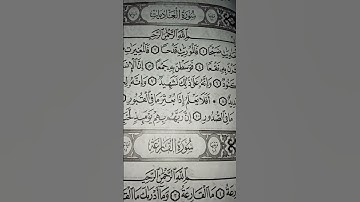 سُورَةُ العَادِيَاتِ
اللَّهِ الرَّحْمَنِ الرَّحِيمِ
ضَبْحًا ۝ فَالْمُورِيَاتِ قَدْحًا ۝ فَالْمُغِيرَاتِ
بِهِ نَقْعًا ۝ فَوَسَطْنَ بِهِ جَمْعًا ۝ إِنَّ
۝ وَإِنَّهُ عَلَى ذَلِكَ لَشَهِيدٌ ۝ وَإِنَّهُ
۝ أَفَلَا يَعْلَمُ إِذَا بُعْثِرَ مَا فِي الْقُبُورِ
مَا فِي الصُّدُورِ ۝ إِنَّ رَبَّهُمْ بِهِمْ يَوْمَئِذٍ
سُورَةُ القَارِعَةِ
اللَّهِ الرَّحْمَنِ الرَّحِيمِ
مَا الْقَارِعَةُ ۝ وَمَا أَدْرَاكَ مَا